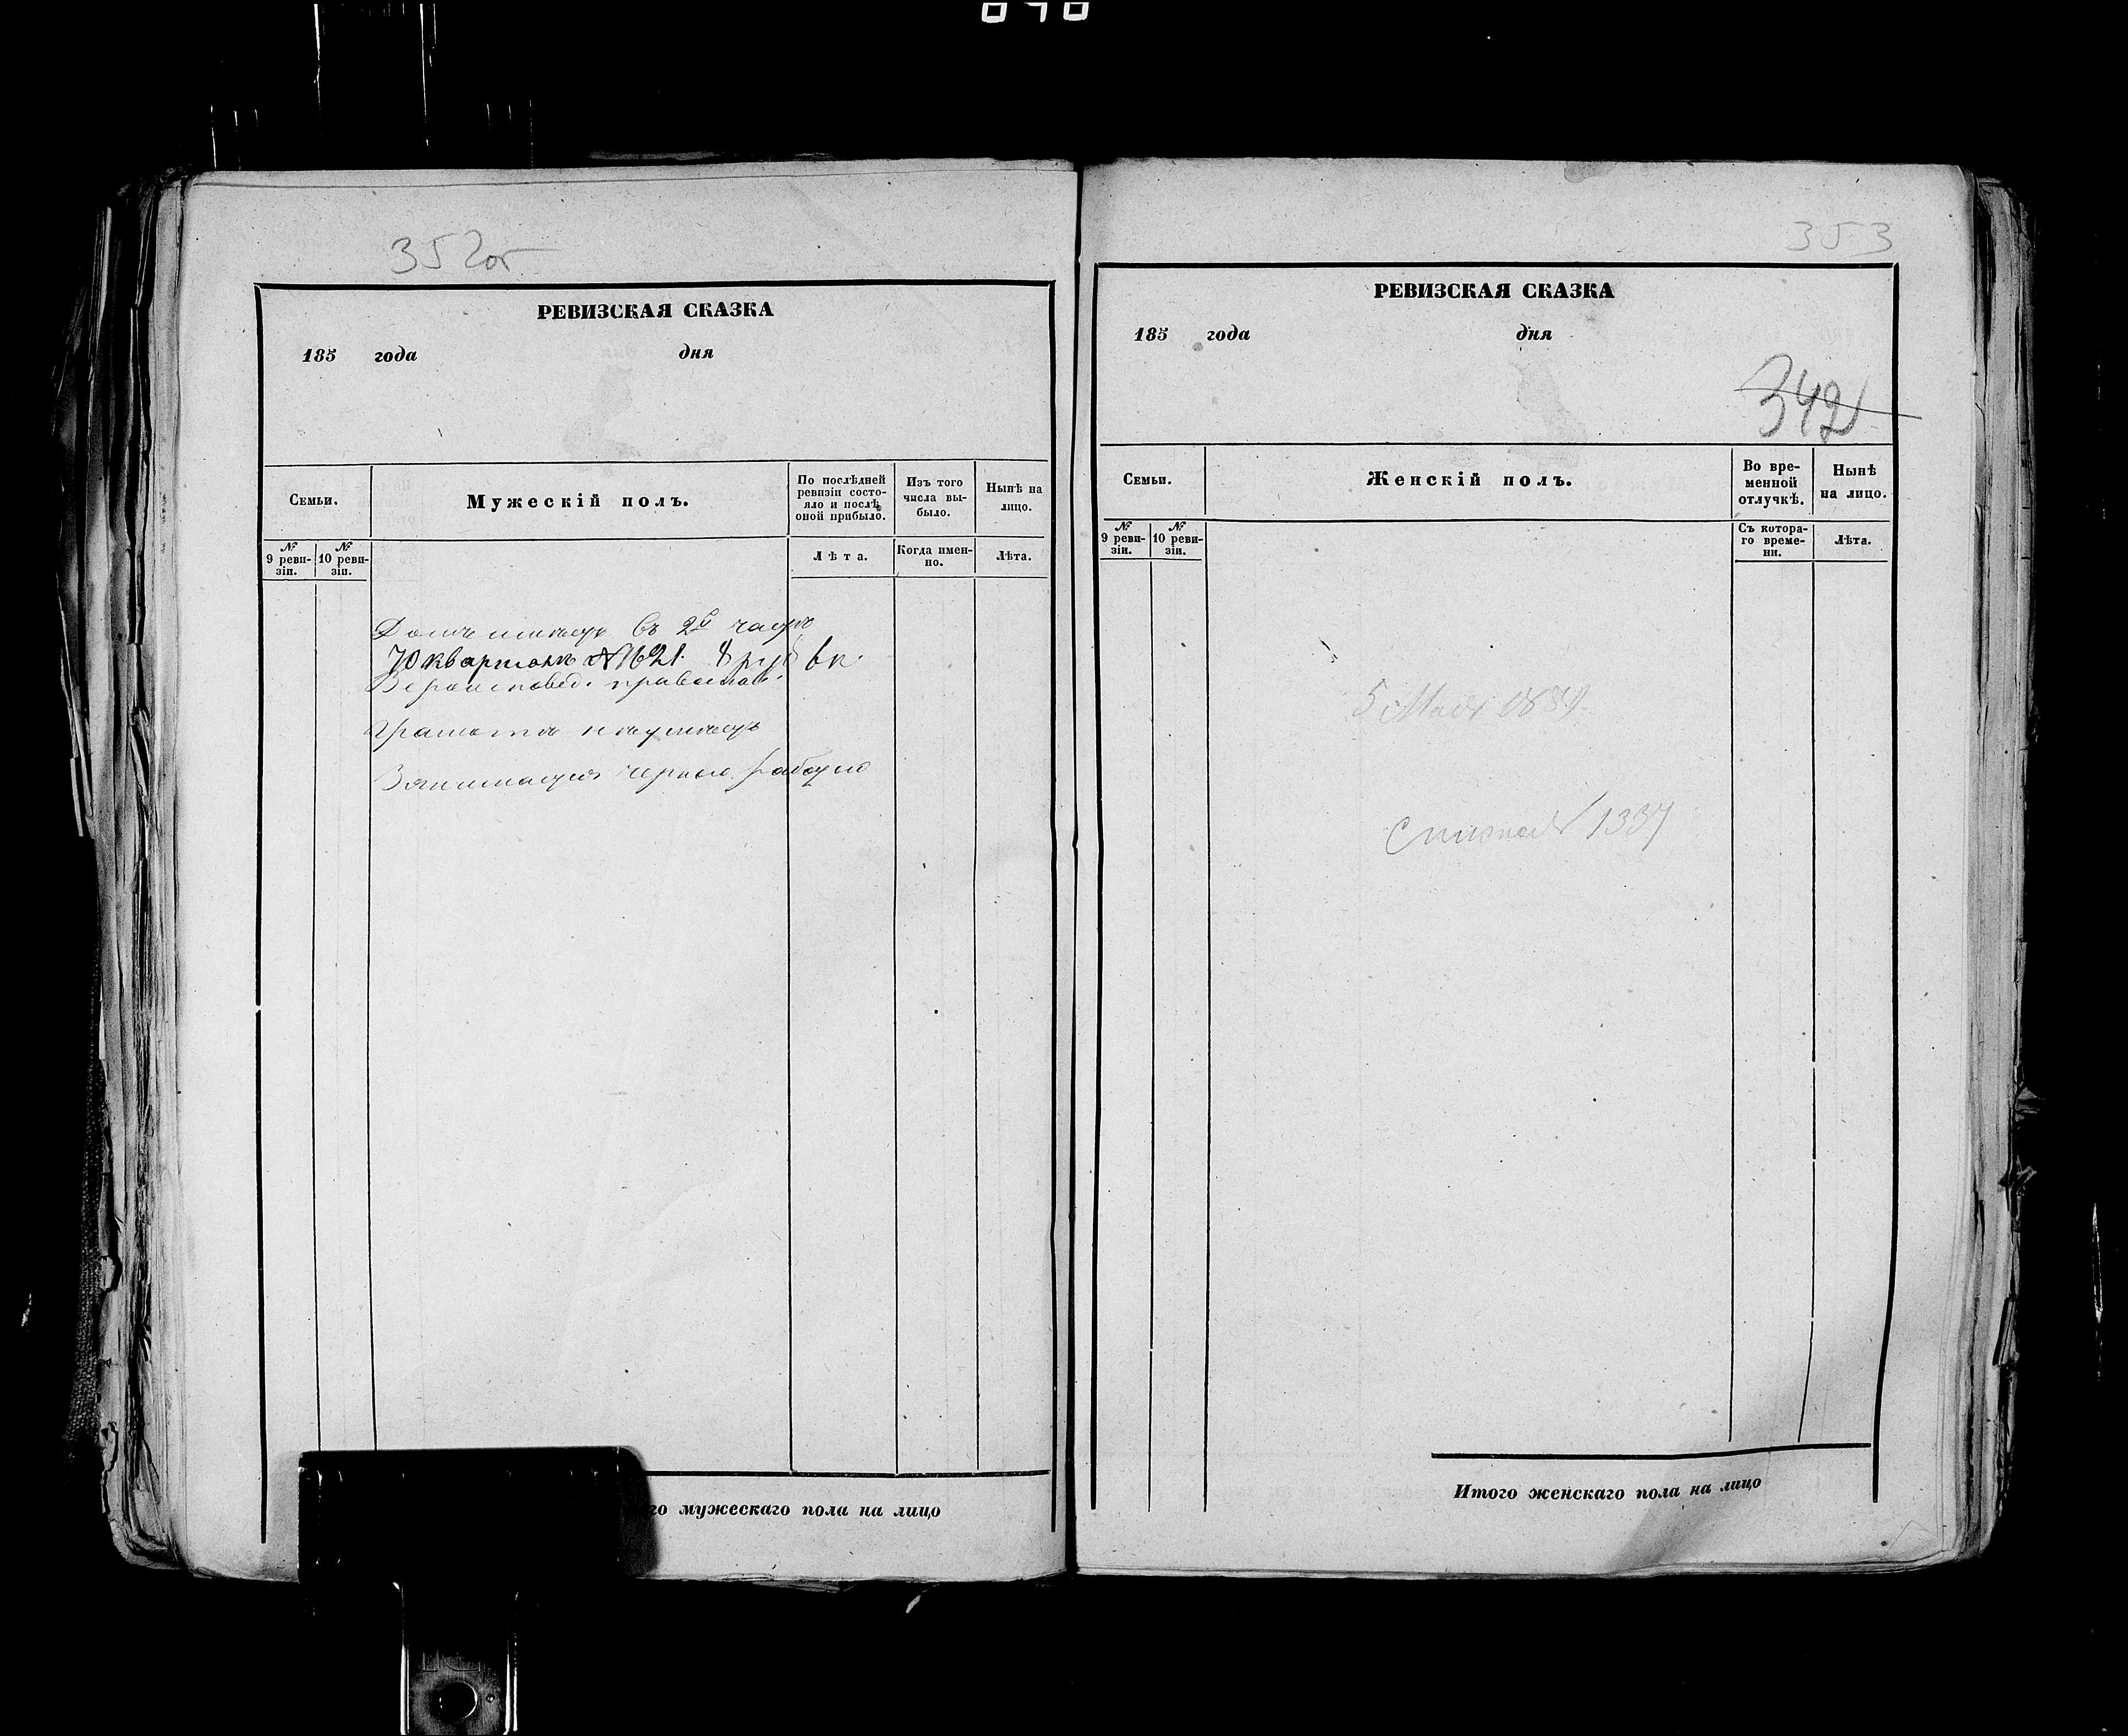 352об
РЕВИЗСКАЯ СКАЗКА
185 года дня
Семьи.
Мужескій полъ.
По послѣдней ревизіи состояло и послѣ оной прибыло.
Изъ того числа выбыло.
Нынѣ на лицо.
№ 9 ревизіи.
№ 10 ревизіи.
Лѣта.
Когда именно.
Лѣта.
Домъ имѣетъ въ 2й части
кварталѣ № 21.
Вероисповед. православ.
Грамотѣ не умѣетъ
Занимается черною работою
го мужескаго пола на лицо
353
РЕВИЗСКАЯ СКАЗКА
185 года дня
342
Семьи.
Женскій полъ.
Во временной отлучкѣ.
Нынѣ на лицо.
№ 9 ревизіи.
№ 10 ревизіи.
Съ котораго времени.
Лѣта.
5 Мая
1337
Итого женскаго пола на лицо